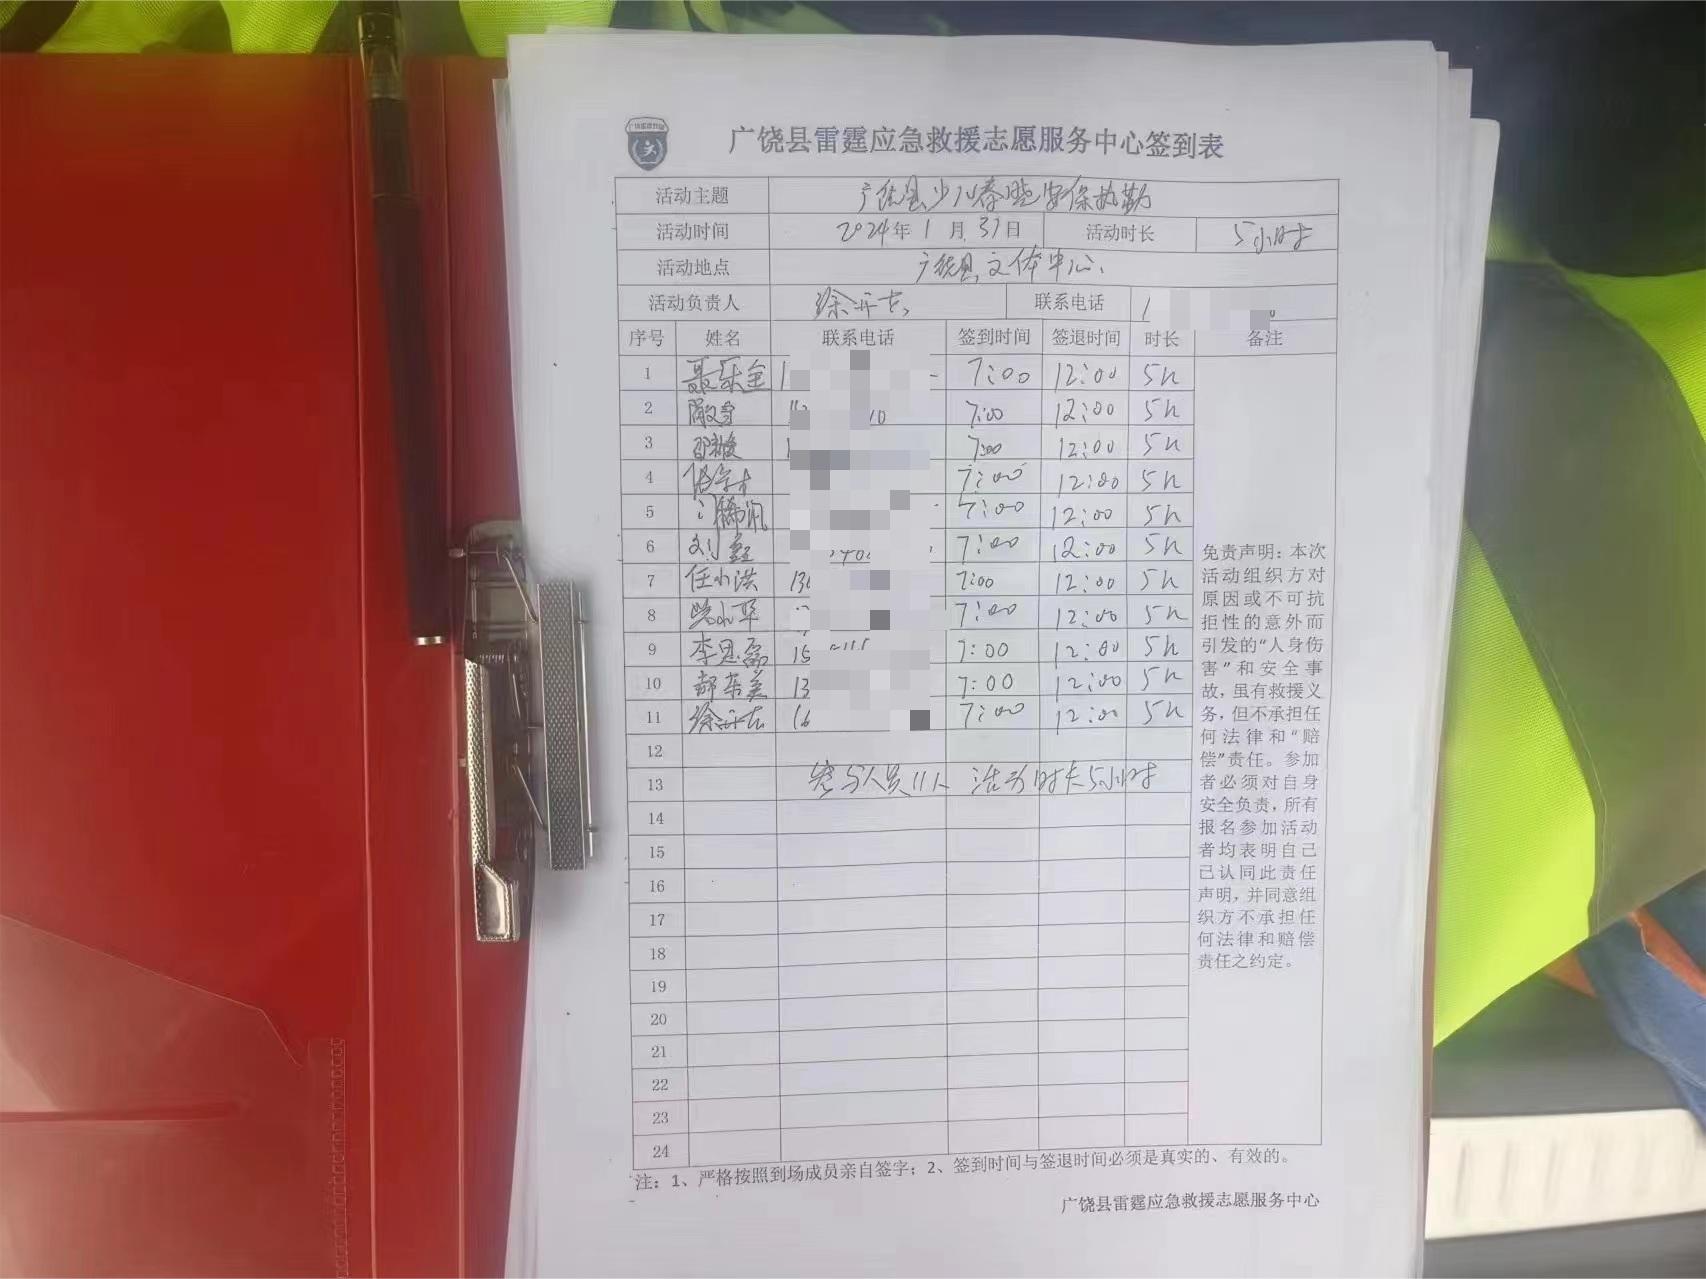 广饶县雷霆应急救援志愿服务中心签到表
活动主题 广饶县少儿春晚安保执勤
活动时间 2024年1月31日 活动时长 5小时
活动地点 广饶县文体中心
活动负责人 联系电话
序号 姓名 联系电话 签到时间 签退时间 时长 备注
1 聂乐全 7:00 12:00 5h
2 7:00 12:00 5h
3 7:00 12:00 5h
4 7:00 12:00 5h
5 7:00 12:00 5h
6 刘鑫 7:00 12:00 5h
7 任小洪 7:00 12:00 5h
8 7:00 12:00 5h
9 李思磊 7:00 12:00 5h
10 7:00 12:00 5h
11 7:00 12:00 5h
12
13 参与人员11人 活动时长5小时
14
15
16
17
18
19
20
21
22
23
24
免责声明：本次
活动组织方对
原因或不可抗
拒性的意外而
引发的“人身伤
害”和安全事
故，虽有救援义
务，但不承担任
何法律和“赔
偿”责任。参加
者必须对自身
安全负责，所有
报名参加活动
者均表明自己
已认同此责任
声明，并同意组
织方不承担任
何法律和赔偿
责任之约定。
注：1、严格按照到场成员亲自签字；2、签到时间与签退时间必须是真实的、有效的。
广饶县雷霆应急救援志愿服务中心